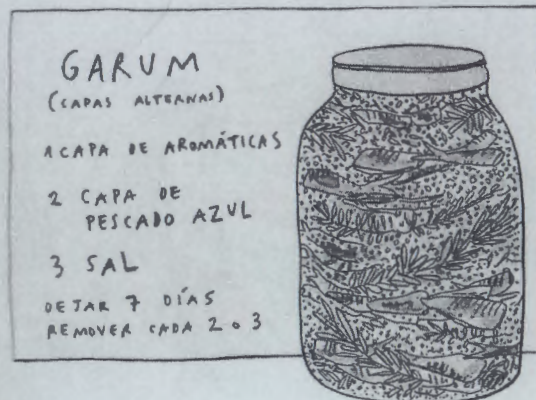 GARUM
(CAPAS ALTERNAS)
1 CAPA DE AROMÁTICAS
2 CAPA DE
PESCADO AZUL
3 SAL
DEJAR 7 DÍAS
REMOVER CADA 2 o 3